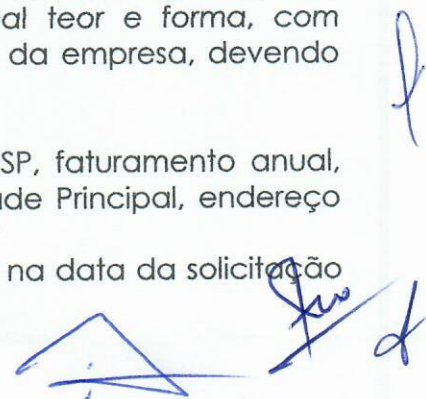 al teor e forma, com
da empresa, devendo
SP, faturamento anual,
de Principal, endereço
na data da solicitação